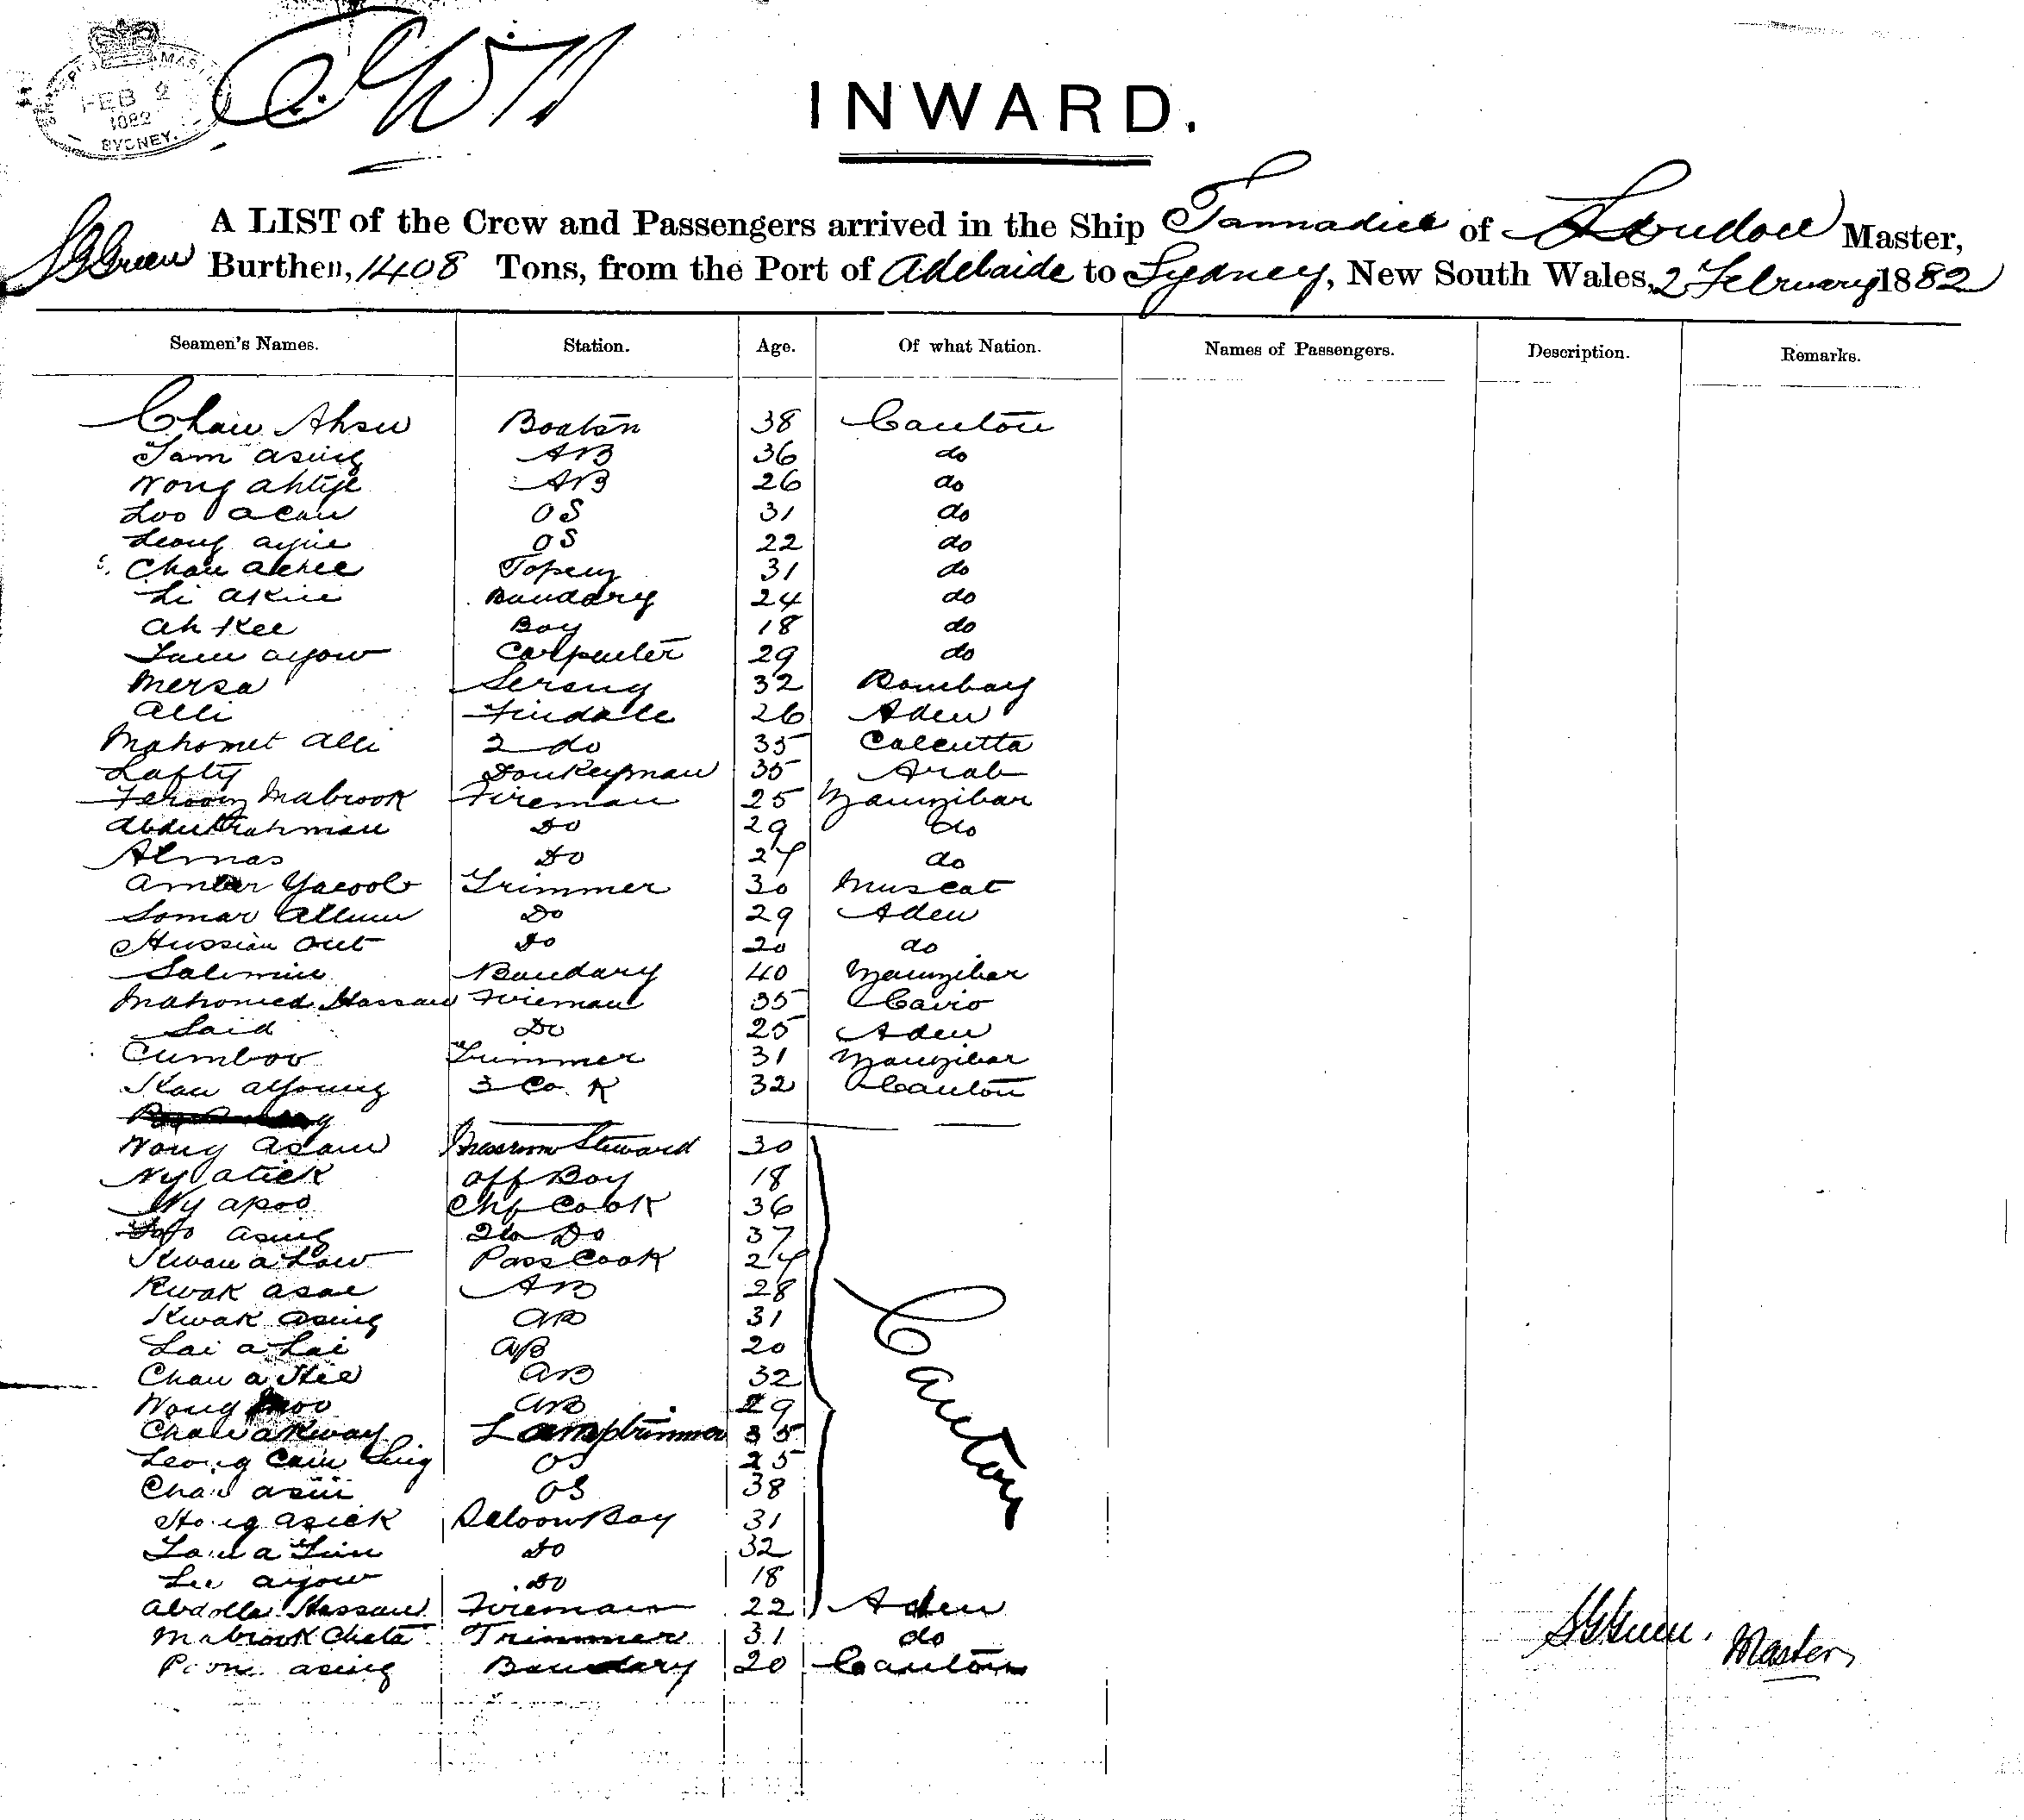 FEB 2
1882
SYDNEY.
INWARD.
A LIST of the Crew and Passengers arrived in the Ship Tannadice of London Master,
S G Green Burthen, 1408 Tons, from the Port of Adelaide to Sydney, New South Wales, 2 February 1882
Seamen's Names. Station. Age. Of what Nation. Names of Passengers. Description. Remarks.
Chau Ahsu 38 Canton
Tam asing AB 36 do
Wong AB 26 do
Loo acau OS 31 do
Leong OS 22 do
Chau 31 do
Li akin Bandary 24 do
Ah Kee Boy 18 do
ayow Carpenter 29 do
Mersa Serang 32 Bombay
Alli Tindale 26 Aden
Mahomet Alli 2 do 35 Calcutta
Lafty Donkeyman 35 Arab
Mabrook Fireman 25 Zanzibar
Abdulrahman Do 29 do
Almas Do 27 do
Amber Yacoob Trimmer 30 Muscat
Somar Do 29 Aden
Hussian Do 20 do
Salimin Bandary 40 Zanzibar
Mahomed Hassan Fireman 35 Cairo
Said Do 25 Aden
Cumboo Trimmer 31 Zanzibar
Kau 3 Co. K 32 Canton
Wong Asam Messroom Steward 30
Ny atick Off Boy 18
Ny apoo Chf Cook 36
asing Do 37
Kwan a Low Pass Cook 27
Kwok asae AB 28
Kwak asing AB 31
Lai a Lai AB 20
Chau a Hee AB 32
Wong AB 29
Chau akway Lamptrimmer 35
Leong Sing OS 25
Chau OS 38
asick Saloon Boy 31
Do 32
Lee ayow Do 18
Canton
Abdolla Hassan Fireman 22 Aden
Mabrook Trimmer 31 do
asing Bandary 20 Canton
S G Green. Master